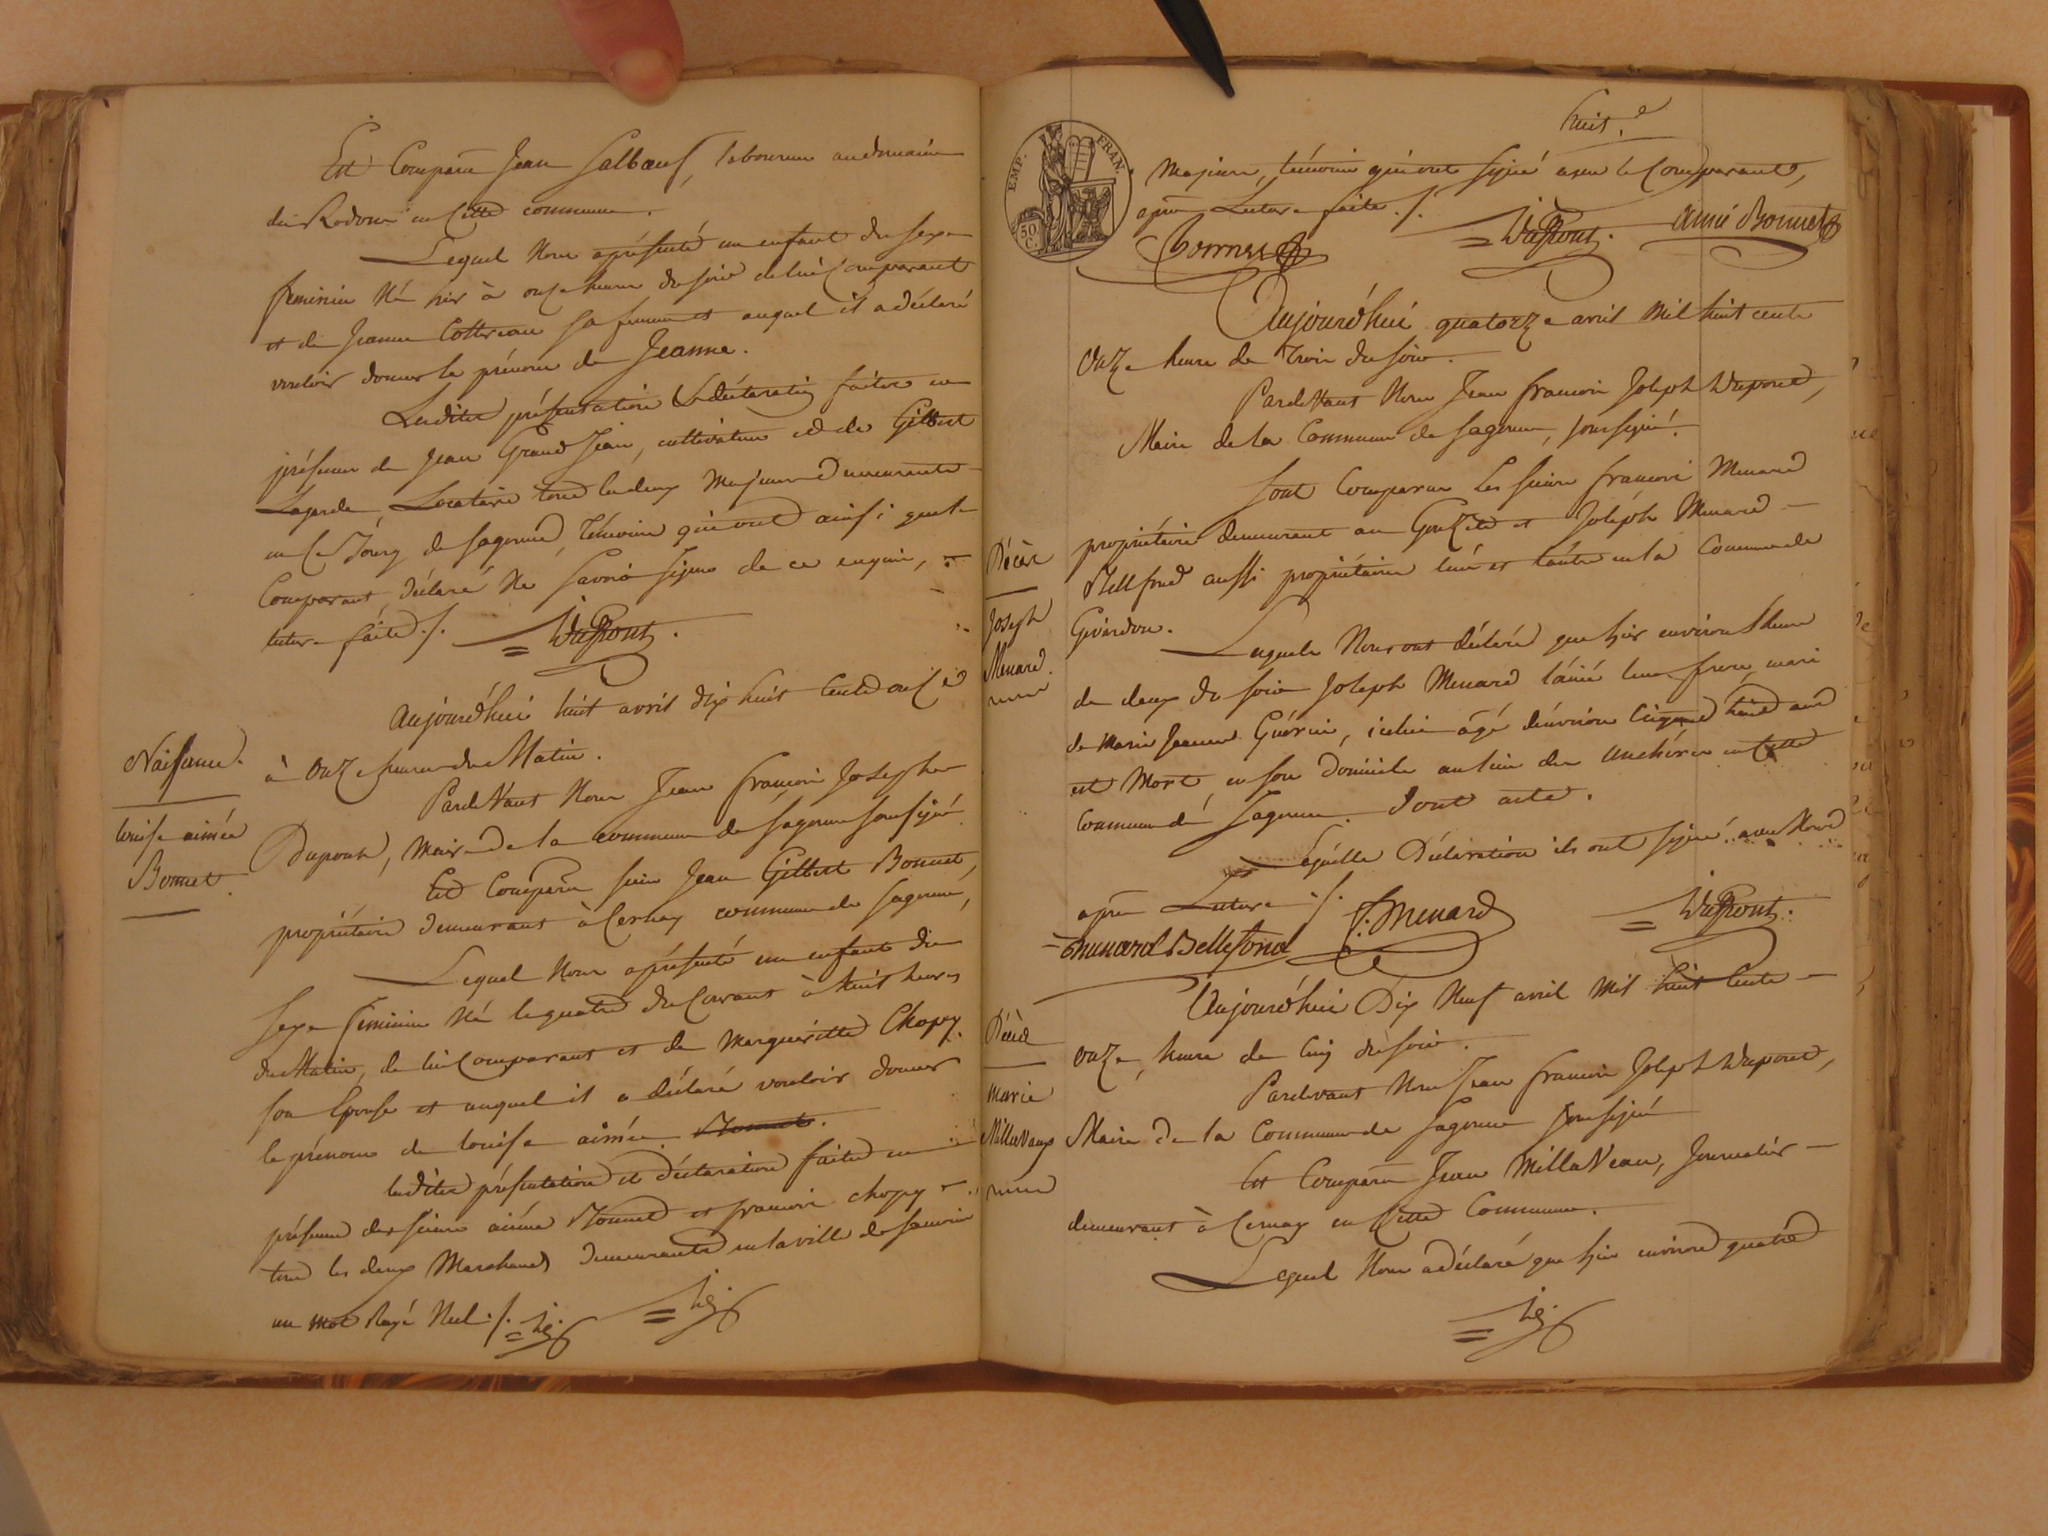 Est Comparu Jean Salboeuf, laboureur au domaine
du Rodour en Cette commune.
Lequel Nous a présenté un enfant du sexe
feminin Né hier à onze heures du soir de lui Comparant
et de Jeanne Cottereau sa femme et auquel il a déclaré
vouloir donner le prénom de Jeanne.
Lesdites présentation & déclaration faites en
présence de Jean Grand Jean, cultivateur et de Gilbert
Lagarde, Locataire tous les deux Majeurs demeurants
en Ce Bourg de Sagonne, témoins qui ont ainsi que le
Comparant déclaré Ne Savoir signer de ce enquis,
lecture faite ./. Dupont.
Naissance.
Louise aimée
Bonnet.
Aujourd'hui huit avril dix huit Cent onze
à onze heures du Matin.
Pardevant Nous Jean François Joseph
Dupont, Maire de la commune de Sagonne soussigné
Est Comparu sieur Jean Gilbert Bonnet,
propriétaire demeurant à Cernay commune de Sagonne,
Lequel Nous a présenté un enfant du
Sexe feminin Né le quatre du Courant à huit heures
du Matin, de lui Comparant et de Margueritte Chopy
son Epouse et auquel il a déclaré vouloir donner
le prénom de Louise aimée Bonnet.
lesdites présentation et déclaration faites en
présence des sieurs aimé Bonnet et françois chopy
tous les deux Marchands demeurants en la ville de Sancoin
un mot Rayé Nul ./.
huit.e
EMP. FRAN.
50 C.
Majeurs, témoins qui ont signé avec le Comparant,
après Lecture faite ./.
Bonnet Dupont. aimé Bonnet
Aujourd'hui quatorze avril Mil huit cent
onze heure de Trois du soir.
Pardevant Nous Jean françois Joseph Dupont,
Maire de la Commune de Sagonne, soussigné.
Décès
Joseph
Menard.
Sont Comparus Les sieurs françois Menard
propriétaire demeurant au Gouzet et Joseph Menard
Bellefond aussi propriétaire l'un et l'autre en la Commune de
Givardon.
Lesquels Nous ont déclaré que hier environ l'heure
de deux du soir Joseph Menard l'ainé leur frere, mari
de Marie Jeanne Guérin, icelui âgé d'environ Cinquante huit ans
est Mort en son domicile au lieu des en Cette
Commune de Sagonne. dont acte.
Laquelle Déclaration ils ont signé avec Nous
après Lecture ./.
Menard Bellefond f. Menard Dupont.
Décès
Marie
Millavaux
Aujourd'hui Dix Neuf avril Mil huit Cent
onze, heure de Cinq du soir.
Pardevant Nous Jean françois Joseph Dupont,
Maire de la Commune de Sagonne soussigné
Est Comparu Jean Millaveau, Journalier
demeurant à Cernay en Cette Commune.
Lequel Nous a déclaré que hier environ quatre